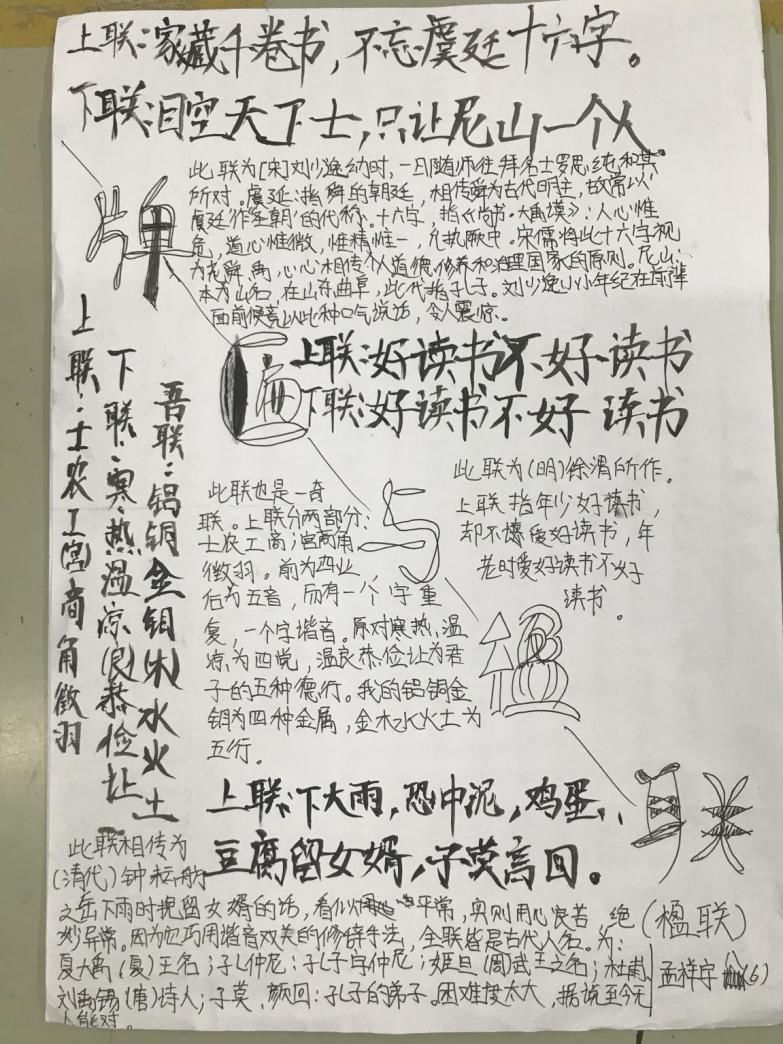 上联：家藏千卷书，不忘虞廷十六字。
下联：目空天下士，只让尼山一个人
此联为[宋]刘少逸幼时，一日随师往拜名士罗思纯和其
所对。虞廷：指舜的朝廷，相传舜为古代明主，故常以
虞廷作圣朝的代称。十六字，指《尚书·大禹谟》：人心惟
危，道心惟微，惟精惟一，允执厥中。宋儒将此十六字视
为尧、舜、禹，心心相传个人道德修养和治理国家的原则。尼山：
本为山名，在山东曲阜，此代指孔子。刘少逸小小年纪在前辈
面前便竟以此种口气说话，令人震惊。
牌
匾
与
楹
联
上联：好读书不好读书
下联：好读书不好读书
此联为(明)徐渭所作。
上联指年少好读书，
却不懂爱好读书，年
老时爱好读书不好
读书。
上联：士农工(宫)商角徵羽
下联：寒热温凉(良)恭俭让
吾联：铝铜金钼(木)水火土
此联也是一奇
联。上联分两部分：
士农工商；宫商角
徵羽。前为四业，
后为五音，而有一个字重
复，一个字谐音。原对寒热温
凉为四觉，温良恭俭让为君
子的五种德行。我的铝铜金
钼为四种金属，金木水火土为
五行。
上联：下大雨，恐中泥，鸡蛋、
豆腐留女婿，子莫言回。
此联相传为
(清代)钟耘舫
之岳下雨时挽留女婿的话，看似平常，实则用心良苦绝
妙异常。因为它巧用谐音双关的修辞手法，全联皆是古代人名。为：
夏大禹(夏)王名；孔仲尼：孔子字仲尼；姬旦(周)武王之名；杜甫
刘禹锡(唐)诗人；子莫、颜回：孔子的弟子。因难度太大，据说至今无
人能对。
(楹联)
孟祥宇(6)